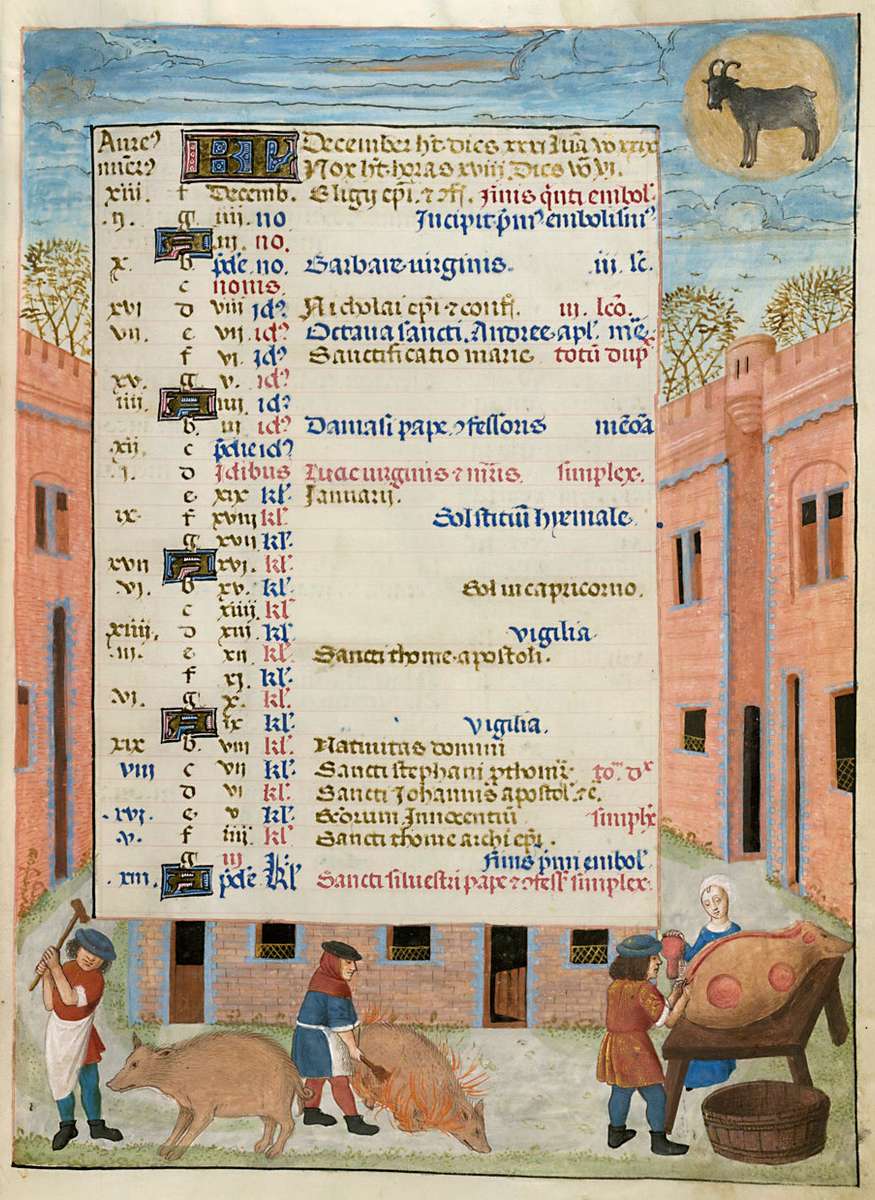 Aure⁹ KL December h̅t dies xxxi Luā v̊ xxix
nu̅er⁹ Nox h̅t horas xviii Dies v̊ vi.
xiii. f Decemb. Eligii ep̅i. ⁊ ꝯf. fīnis q̄nti embol.
.ij. g iiii no Incipit p̄m⁹ embolism⁹
A iii no.
x. b pdie no. Barbare uirginis. .iii. lc.
c nonis.
xvi d viii id⁹ Nicholai ep̅i ⁊ conf. iii. lcō.
vii. e vii. id⁹ Octaua sancti. Andree. apl̅.
f vi. id⁹ Sanctificatio marie totū dup̄x
xv. g v. id⁹
iiii. A iiii id⁹
b iii id⁹ Damasi pape. ⁊ ꝯfessoris
xii c pdie id⁹
.i. d Idibus Lucie uirginis ⁊ mr̄is. simplex.
e xix kl̅. Ianuarii.
ix. f xviii kl̅. Solstitiū hyemale.
g xvii kl̅.
xvii A xvi. kl̅.
vi. b xv. kl̅. Sol in capricorno.
c xiiii. kl̅
xiiii. d xiii. kl̅. vigilia.
.iii. e xii kl̅. Sancti thome. apostoli.
f xi. kl̅.
.vi. g x. kl̅.
A ix kl̅. vigilia.
xix b. viii kl̅. Natiuitas domini
viii c vii kl̅. Sancti stephani pthom̄r. to᷒. dx
d vi kl̅. Sancti Johannis apostol. ⁊ e.
.xvi. e v kl̅. Scorum Innocentiū simplx
.v. f iiii kl̅. Sancti thome archi ep̅i.
g iii kl̅. fīnis p̄mi embol.
.xiii. A pdie kl̅ Sancti siluestri pape ⁊ ꝯfess simplex.